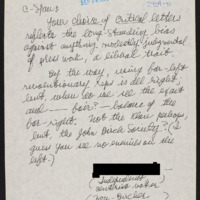 C-Span:
Your choice of critical letters
reflects the long-standing bias
against anything modestly judgmental
of press work, a liberal trait.
By the way, using far-left
revolutionary reps is all right,
but, when do we see the exact
and — born? — balance of the
far-right. Not the Klan perhaps,
but, the John Birch Society? (I
guess you see no enemies on the
left.)
(Independent
non-Bircher